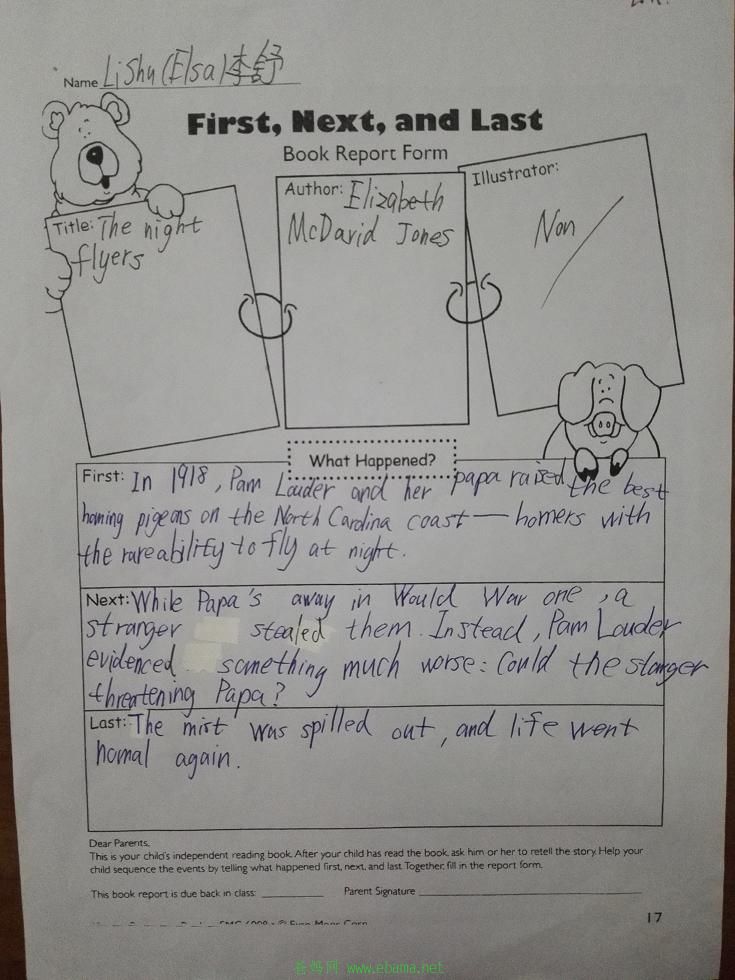 Name Li Shu (Elsa) 李舒
First, Next, and Last
Book Report Form
Title: The night
flyers
Author: Elizabeth
McDavid Jones
Illustrator:
Non
What Happened?
First: In 1918, Pam Louder and her papa raised the best
homing pigeons on the North Carolina coast — homers with
the rare ability to fly at night.
Next: While Papa's away in Would War one, a
stranger stealed them. Instead, Pam Louder
evidenced something much worse: Could the stanger
threatening Papa?
Last: The mist was spilled out, and life went
homal again.
Dear Parents,
This is your child's independent reading book. After your child has read the book, ask him or her to retell the story. Help your
child sequence the events by telling what happened first, next, and last. Together, fill in the report form.
This book report is due back in class: Parent Signature
17
爸妈网 www.ebama.net